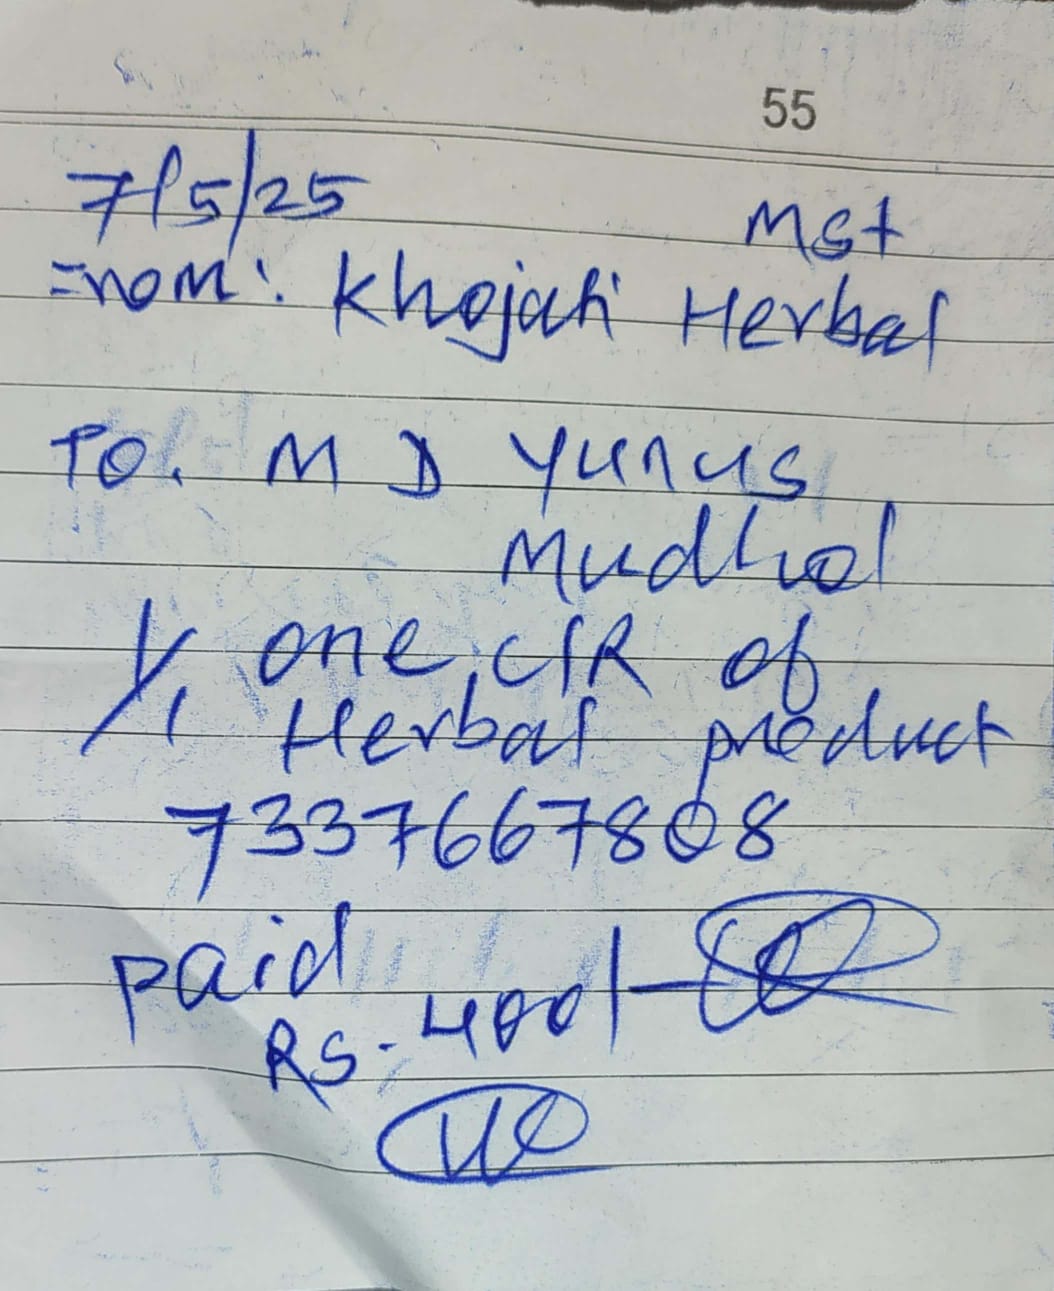 55
7/5/25 MSt
From: Khojati Herbal
To. M D Yunus
Mudhol
1/1 one C/R of
Herbal product
7337667808
paid
RS. 400/-